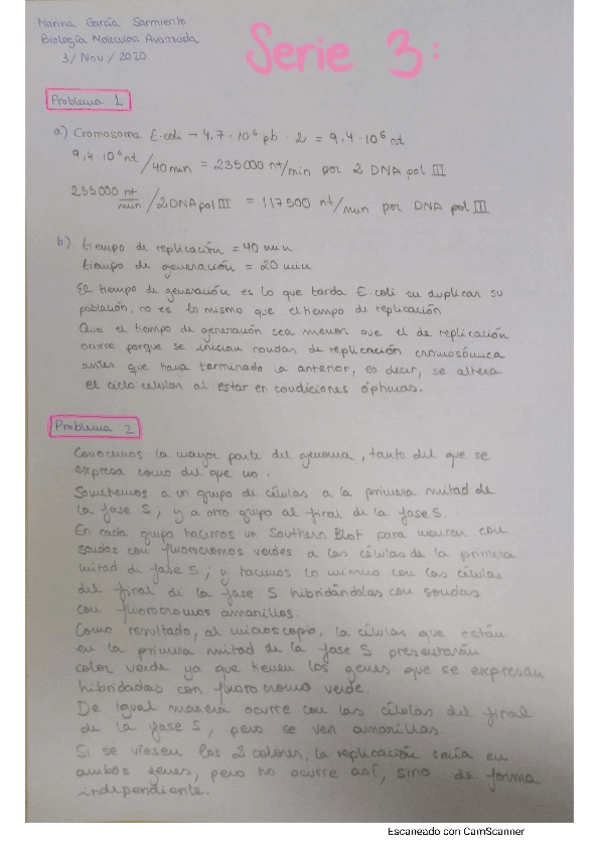 Nanna García Sarmiento
Biología Molecular Avanzada
3/Nov/2020
Serie 3:
Problema 1
a) Cromosoma E.coli → 4,7·10⁶ pb · 2 = 9,4·10⁶ nt
9,4·10⁶ nt/40 min = 235000 nt/min por 2 DNA pol III
235000 nt/min/2 DNA pol III = 117500 nt/min por DNA pol III
b) tiempo de replicación = 40 min
tiempo de generación = 20 min
El tiempo de generación es lo que tarda E.coli en duplicar su
población, no es lo mismo que el tiempo de replicación
Que el tiempo de generación sea menor que el de replicación
ocurre porque se inician rondas de replicación cromosómica
antes que haya terminado la anterior, es decir, se altera
el ciclo celular al estar en condiciones óptimas.
Problema 2
Conocemos la mayor parte del genoma, tanto del que se
expresa como del que no.
Sometemos a un grupo de células a la primera mitad de
la fase S, y a otro grupo al final de la fase S.
En cada grupo hacemos un Southern Blot para marcar con
sondas con fluorocromos verdes a las células de la primera
mitad de fase S; y hacemos lo mismo con las células
del final de la fase S hibridándolas con sondas
con fluorocromos amarillos.
Como resultado, al microscopio, la células que están
en la primera mitad de la fase S presentarán
color verde ya que tienen los genes que se expresan
hibridadas con fluorocromo verde.
De igual manera ocurre con las células del final
de la fase S, pero se ven amarillas.
Si se viesen los 2 colores, la replicación sería en
ambos genes, pero no ocurre así, sino de forma
independiente.
Escaneado con CamScanner